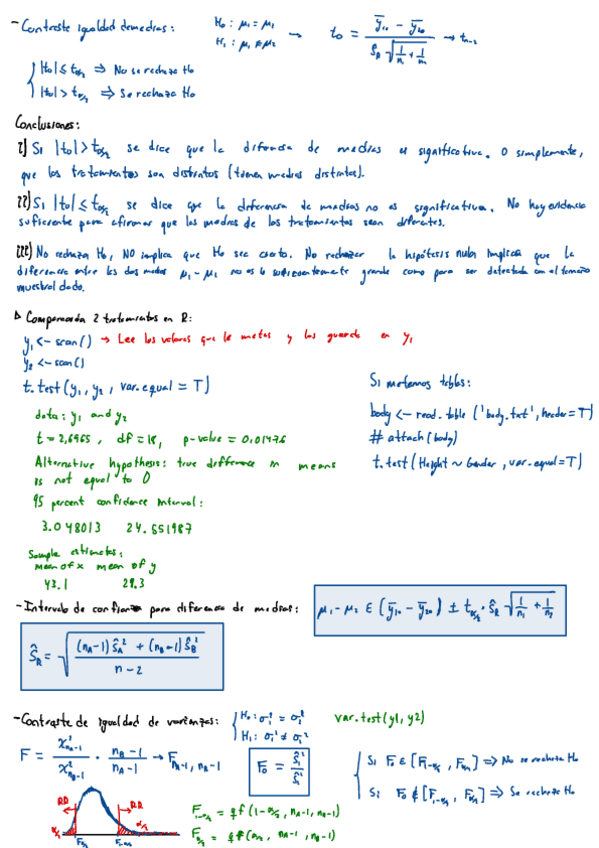 - Contraste igualdad de medias: H₀: μ₁ = μ₂ → t₀ = (ȳ₁. − ȳ₂.) / (Ŝ_R √(1/n₁ + 1/n₂)) → t_{n-2}
H₁: μ₁ ≠ μ₂
|t₀| ≤ t_{α/2} ⇒ No se rechaza H₀
|t₀| > t_{α/2} ⇒ Se rechaza H₀
Conclusiones:
i) Si |t₀| > t_{α/2} se dice que la diferencia de medias es significativa. O simplemente,
que los tratamientos son distintos (tienen medias distintas).
ii) Si |t₀| ≤ t_{α/2} se dice que la diferencia de medias no es significativa. No hay evidencia
suficiente para afirmar que las medias de los tratamientos sean diferentes.
iii) No rechazar H₀, NO implica que H₀ sea cierto. No rechazar la hipótesis nula implica que la
diferencia entre las dos medias μ₁ − μ₂ no es lo suficientemente grande como para ser detectada con el tamaño
muestral dado.
Comparación 2 tratamientos en R:
y₁ <- scan() → Lee los valores que le metas y los guarda en y₁
y₂ <- scan()
t.test(y₁, y₂, var.equal = T)
data: y₁ and y₂
t = 2,6965, df = 18, p-value = 0,01476
Alternative hypothesis: true difference in means
is not equal to 0
95 percent confidence interval:
3.048013 24.551987
Sample estimates:
mean of x mean of y
43.1 29.3
Si metemos tablas:
body <- read.table ('body.txt', header = T)
# attach(body)
t.test(Height ~ Gender, var.equal = T)
- Intervalo de confianza para diferencia de medias: μ₁ − μ₂ ∈ (ȳ₁. − ȳ₂.) ± t_{α/2} · Ŝ_R √(1/n₁ + 1/n₂)
Ŝ_R = √(((n_A−1) Ŝ_A² + (n_B−1) Ŝ_B²) / (n−2))
- Contraste de igualdad de varianzas: H₀: σ₁² = σ₂² var.test(y1, y2)
H₁: σ₁² ≠ σ₂²
F = χ²_{n_A−1} / χ²_{n_B−1} · (n_B−1) / (n_A−1) → F_{n_A−1, n_B−1}
F₀ = Ŝ₁² / Ŝ₂²
Si F₀ ∈ [F_{1−α/2}, F_{α/2}] ⇒ No se rechaza H₀
Si F₀ ∉ [F_{1−α/2}, F_{α/2}] ⇒ Se rechaza H₀
R.R. R.R.
α/2 α/2
F_{α/2} F_{1−α/2}
F_{1−α/2} = qf(1−α/2, n_A−1, n_B−1)
F_{α/2} = qf(α/2, n_A−1, n_B−1)